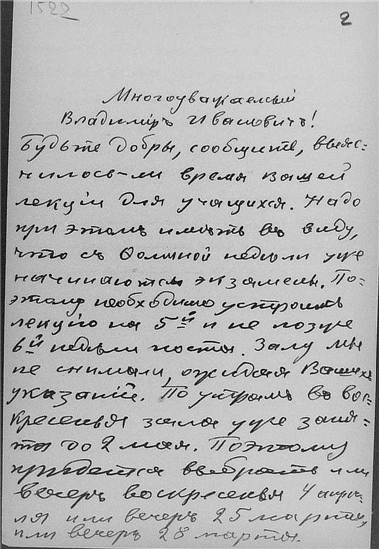 1522
2
Многоуважаемый
Владимiръ Ивановичъ!
Будьте добры, сообщите, выяс-
нилось-ли время Вашей
лекцiи для учащихся. Надо
при этомъ имѣть въ виду,
что съ Фоминой недѣли уже
начинаются экзамены. По-
этому необходимо устроить
лекцiю на 5й и не позже
6й недѣли поста. Залу мы
не снимали, ожидая Вашихъ
указанiй. По утрамъ въ вос-
кресенья зала уже заня-
та до 2 мая. Поэтому
придется выбрать или
вечеръ воскресенья 4 апрѣ-
ля или вечеръ 25 марта,
или вечеръ 28 марта.